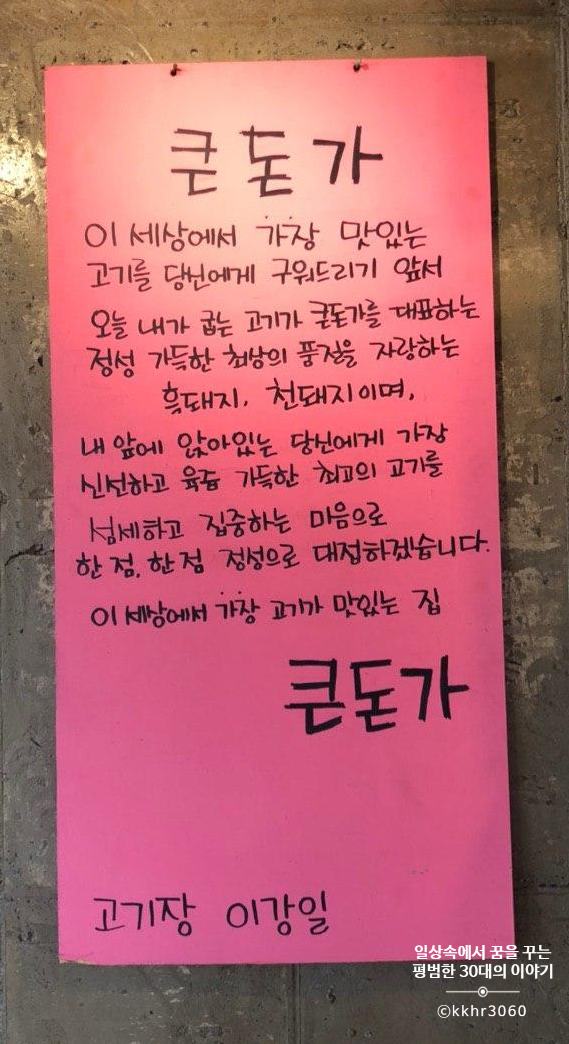 큰돈가
이 세상에서 가장 맛있는
고기를 당신에게 구워드리기 앞서
오늘 내가 굽는 고기가 큰돈가를 대표하는
정성 가득한 최상의 품질을 자랑하는
흑돼지, 천돼지이며,
내 앞에 앉아있는 당신에게 가장
신선하고 육즙 가득한 최고의 고기를
섬세하고 집중하는 마음으로
한 점, 한 점 정성으로 대접하겠습니다.
이 세상에서 가장 고기가 맛있는 집
큰돈가
고기장 이강일
일상속에서 꿈을 꾸는
평범한 30대의 이야기
©kkhr3060